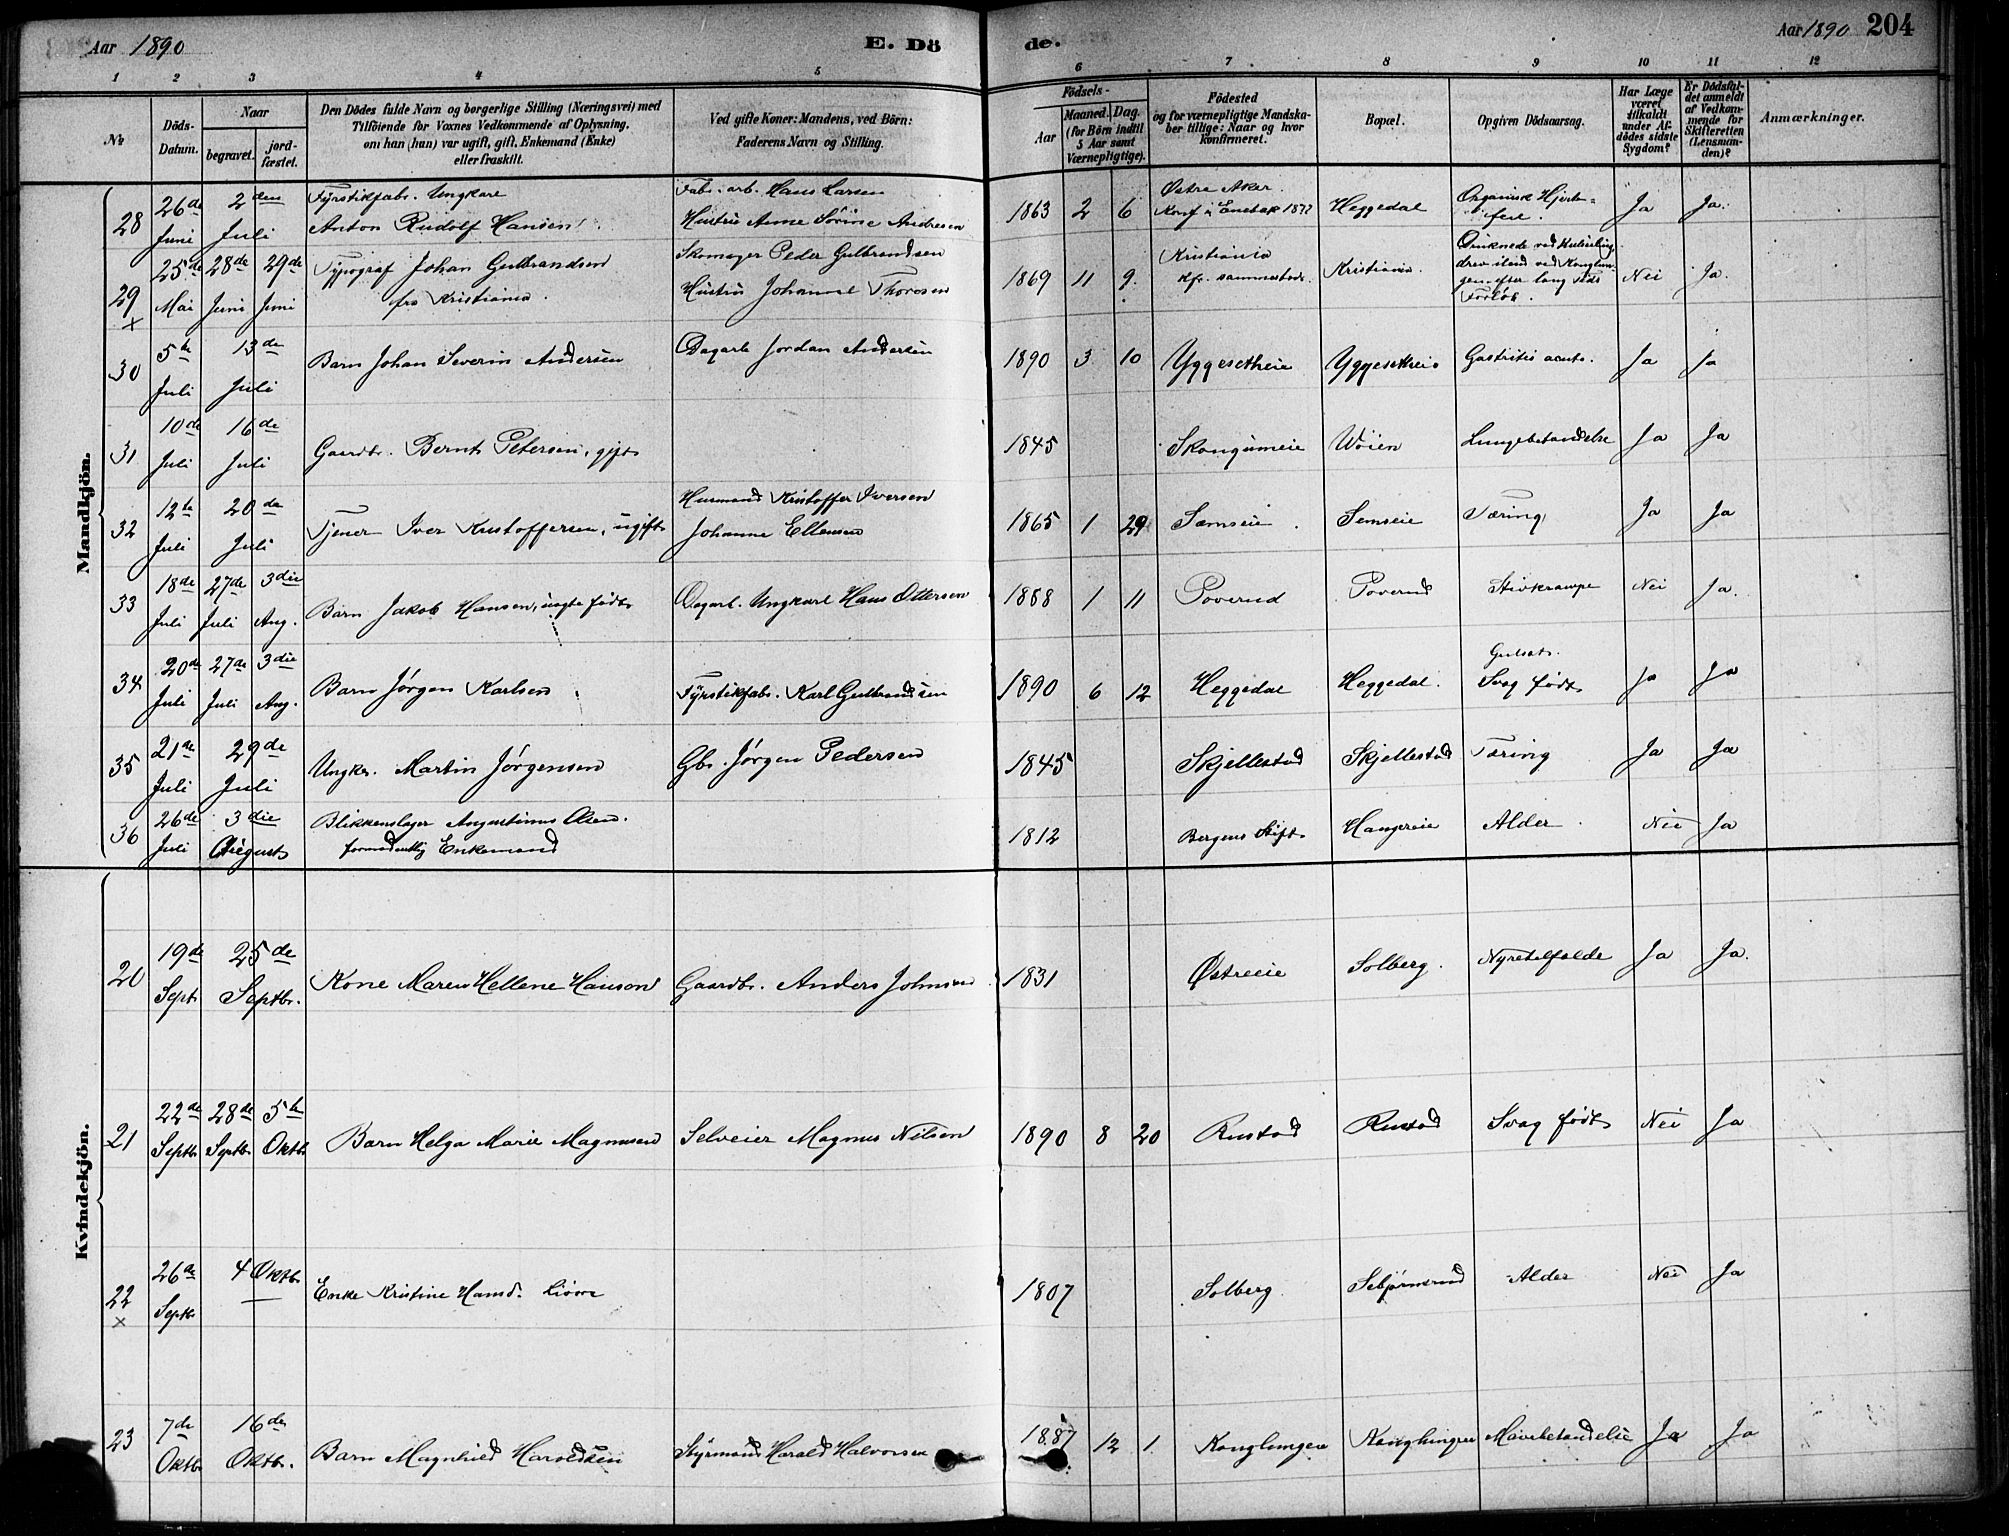 Aar 1890
E. Dö
de.
Aar 1890 204
1 2 3 4 5 6 7 8 9 10 11 12
№
Döds-
Datum.
Naar
begravet.
jord-
fæstet.
Den Dödes fulde Navn og borgerlige Stilling (Næringsvei) med
Tilföiende for Voxnes Vedkommende af Oplysning,
om han (hun) var ugift, gift, Enkemand (Enke)
eller fraskilt.
Ved gifte Koner: Mandens, ved Börn:
Faderens Navn og Stilling.
Födsels-
Aar
Maaned. Dag.
(for Börn indtil
5 Aar samt
Værnepligtige).
Födested
og for værnepligtige Mandska-
ber tillige: Naar og hvor
konfirmeret.
Bopæl.
Opgiven Dödsaarsag.
Har Læge
været
tilkaldt
under Af-
dödes sidste
Sygdom?
Er Dödsfal-
det anmeldt
af Vedkom-
mende for
Skifteretten
(Lensman-
den)?
Anmærkninger.
Mandkjön.
28 26de Juni 2den Juli Fyrstikfabr. Ungkarl
Anton Rudolf Hansen Fabr. arb. Hans Larsen
Hustru Anne Sörine Andresen 1863 2 6 Østre Aker.
Konf. i Enebak 1877 Heggedal Organisk Hjerte=
feil. Ja Ja.
29 x 25de Mai 28de Juni 29de Juni Typograf Johan Gulbrandsen
fra Kristiania. Skomager Peder Gulbrandsen
Hustru Johanne Thoresen 1869 11 9. Kristiania
kfr. sammesteds. Kristiania. Druknede ved
drev iland ved
efter lang Tids
Forløb. Nei Ja.
30 5te Juli 13de Juli Barn Johan Severin Andersen Dagarb. Jordan Andersen 1890 3 10 Yggesetheie Yggesetheie Gastritis acuta. Ja Ja
31 10de Juli 16de Juli Gaardbr. Bernt Petersen, gift 1845 Skougumeie Wöien Lungebetændelse Ja Ja
32 12te Juli 20de Juli Tjener Iver Kristoffersen, ugift Husmand Kristoffer Iversen
Johanne Ellensen 1865 1 29 Semseie Semseie Tæring Ja Ja
33 18de Juli 27de Juli 3die Aug. Barn Jakob Hansen, uægte født Dagarb. Ungkarl Hans Ottersen 1888 1 11 Poverud Poverud Stivkrampe Nei Ja.
34 20de Juli 27de Juli 3die Aug. Barn Jørgen Karlsen Fyrstikfabr. Karl Gulbrandsen 1890 6 12 Heggedal Heggedal. Gulsot.
Svag født Ja Ja
35 21de Juli 29de Juli Ungkr. Martin Jørgensen Gbr. Jørgen Pedersen 1845 Skjellestad Skjellestad Tæring Ja Ja
36 26de Juli 3die August Blikkenslager Augustinus Olsen.
formodentlig Enkemand 1812 Bergens Stift Hangereie Alder Nei Ja
Kvindekjön.
20 19de Sept. 25de Septbr. Kone Maren Hellene Hanson Gaardbr. Anders Johnsen 1831 Østreeie Solberg. Nyretilfælde Ja Ja.
21 22de Septbr 28de Septbr. 5te Oktb. Barn Helga Marie Magnusen Selveier Magnus Nilsen 1890 8 20 Rustad Rustad Svag født Nei Ja
22 x 26de Septbr 4 Oktbr. Enke Kristine Hansd. 1807 Solberg Alder Nei Ja
23 7de Oktbr 16de Oktbr. Barn Magnhild Haroldsen Styrmand Harald Halvorsen 1887 12 1 Konglungen Konglungen Mavebetændelse Ja Ja